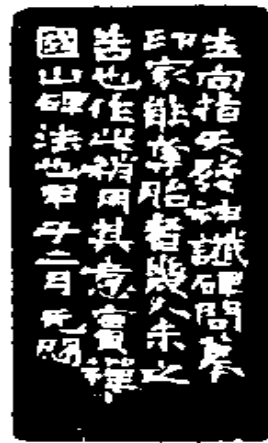 生向指天發神讖碑問摹
印家能奪胎者幾人未之
答也作此稍用其意實禪
國山碑法也甲子二月无悶